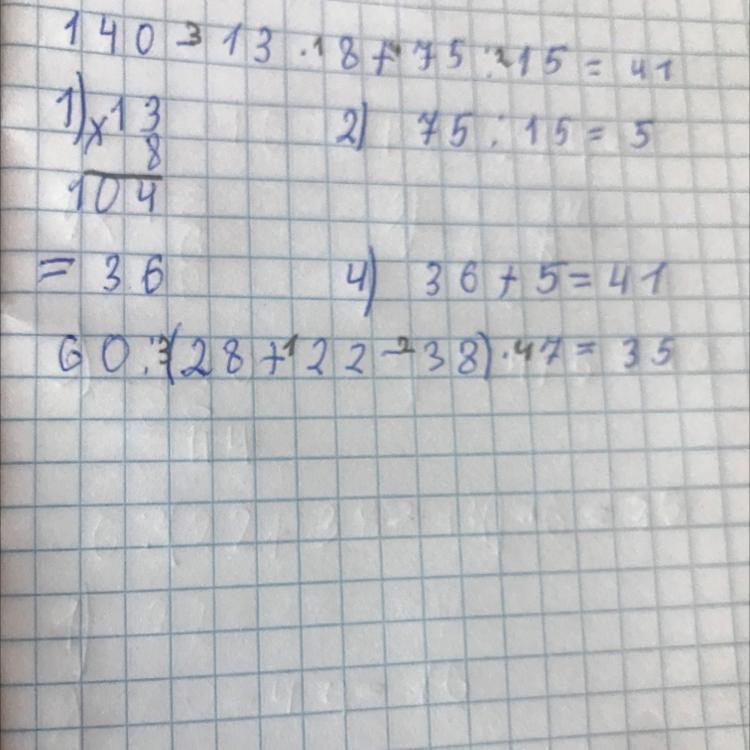 140 -³ 13 ·¹ 8 +⁴ 75 :² 15 = 41
1) ×13 2) 75 : 15 = 5
8
104
= 36 4) 36 + 5 = 41
60 :³ (28 +¹ 22 -² 38) ·⁴ 7 = 35